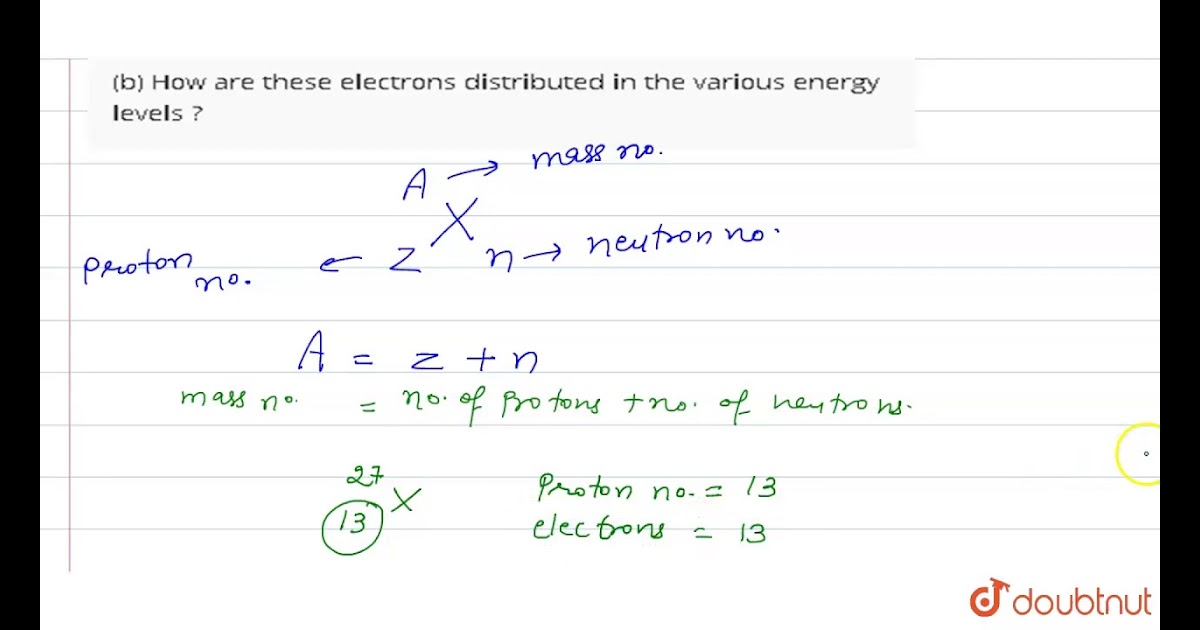 (b) How are these electrons distributed in the various energy
levels ?
A → mass no.
X
proton no. ← Z n → neutron no.
A = z + n
mass no. = no. of protons + no. of neutrons.
27
13 X Proton no. = 13
electrons = 13
doubtnut